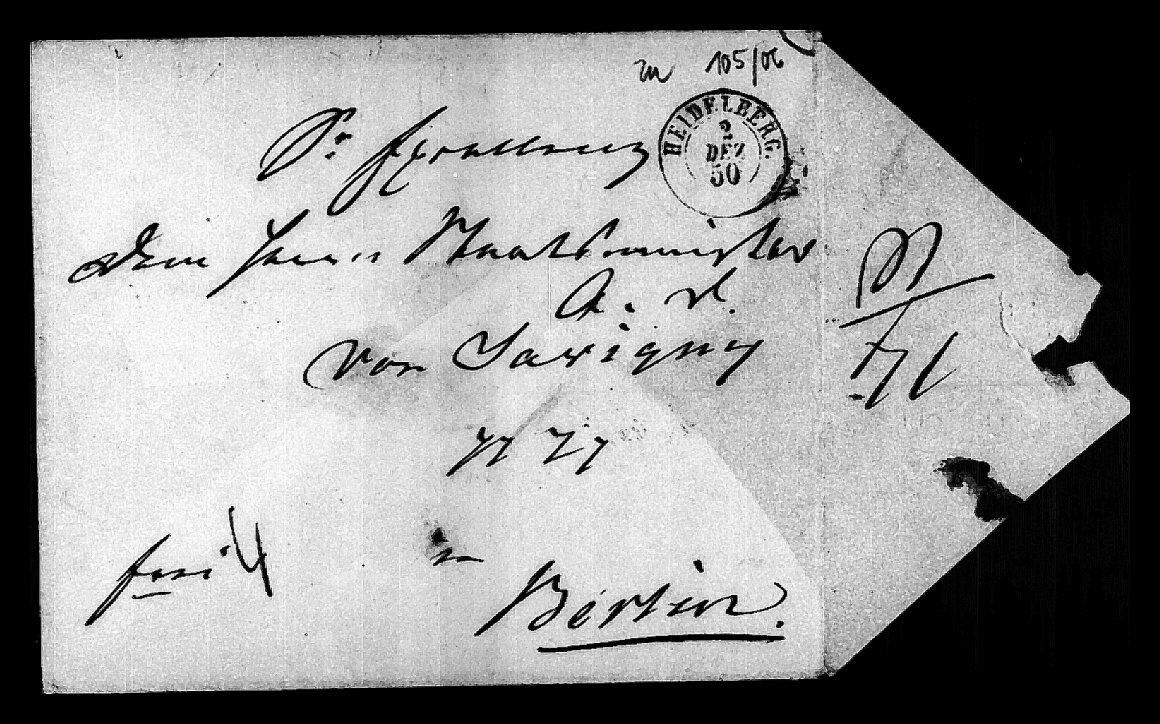 zu 105/06
HEIDELBERG.
2
DEZ
50
Sr. Excellenz
dem Herrn Staatsminister
a. D.
von Savigny
frei
in
Berlin.